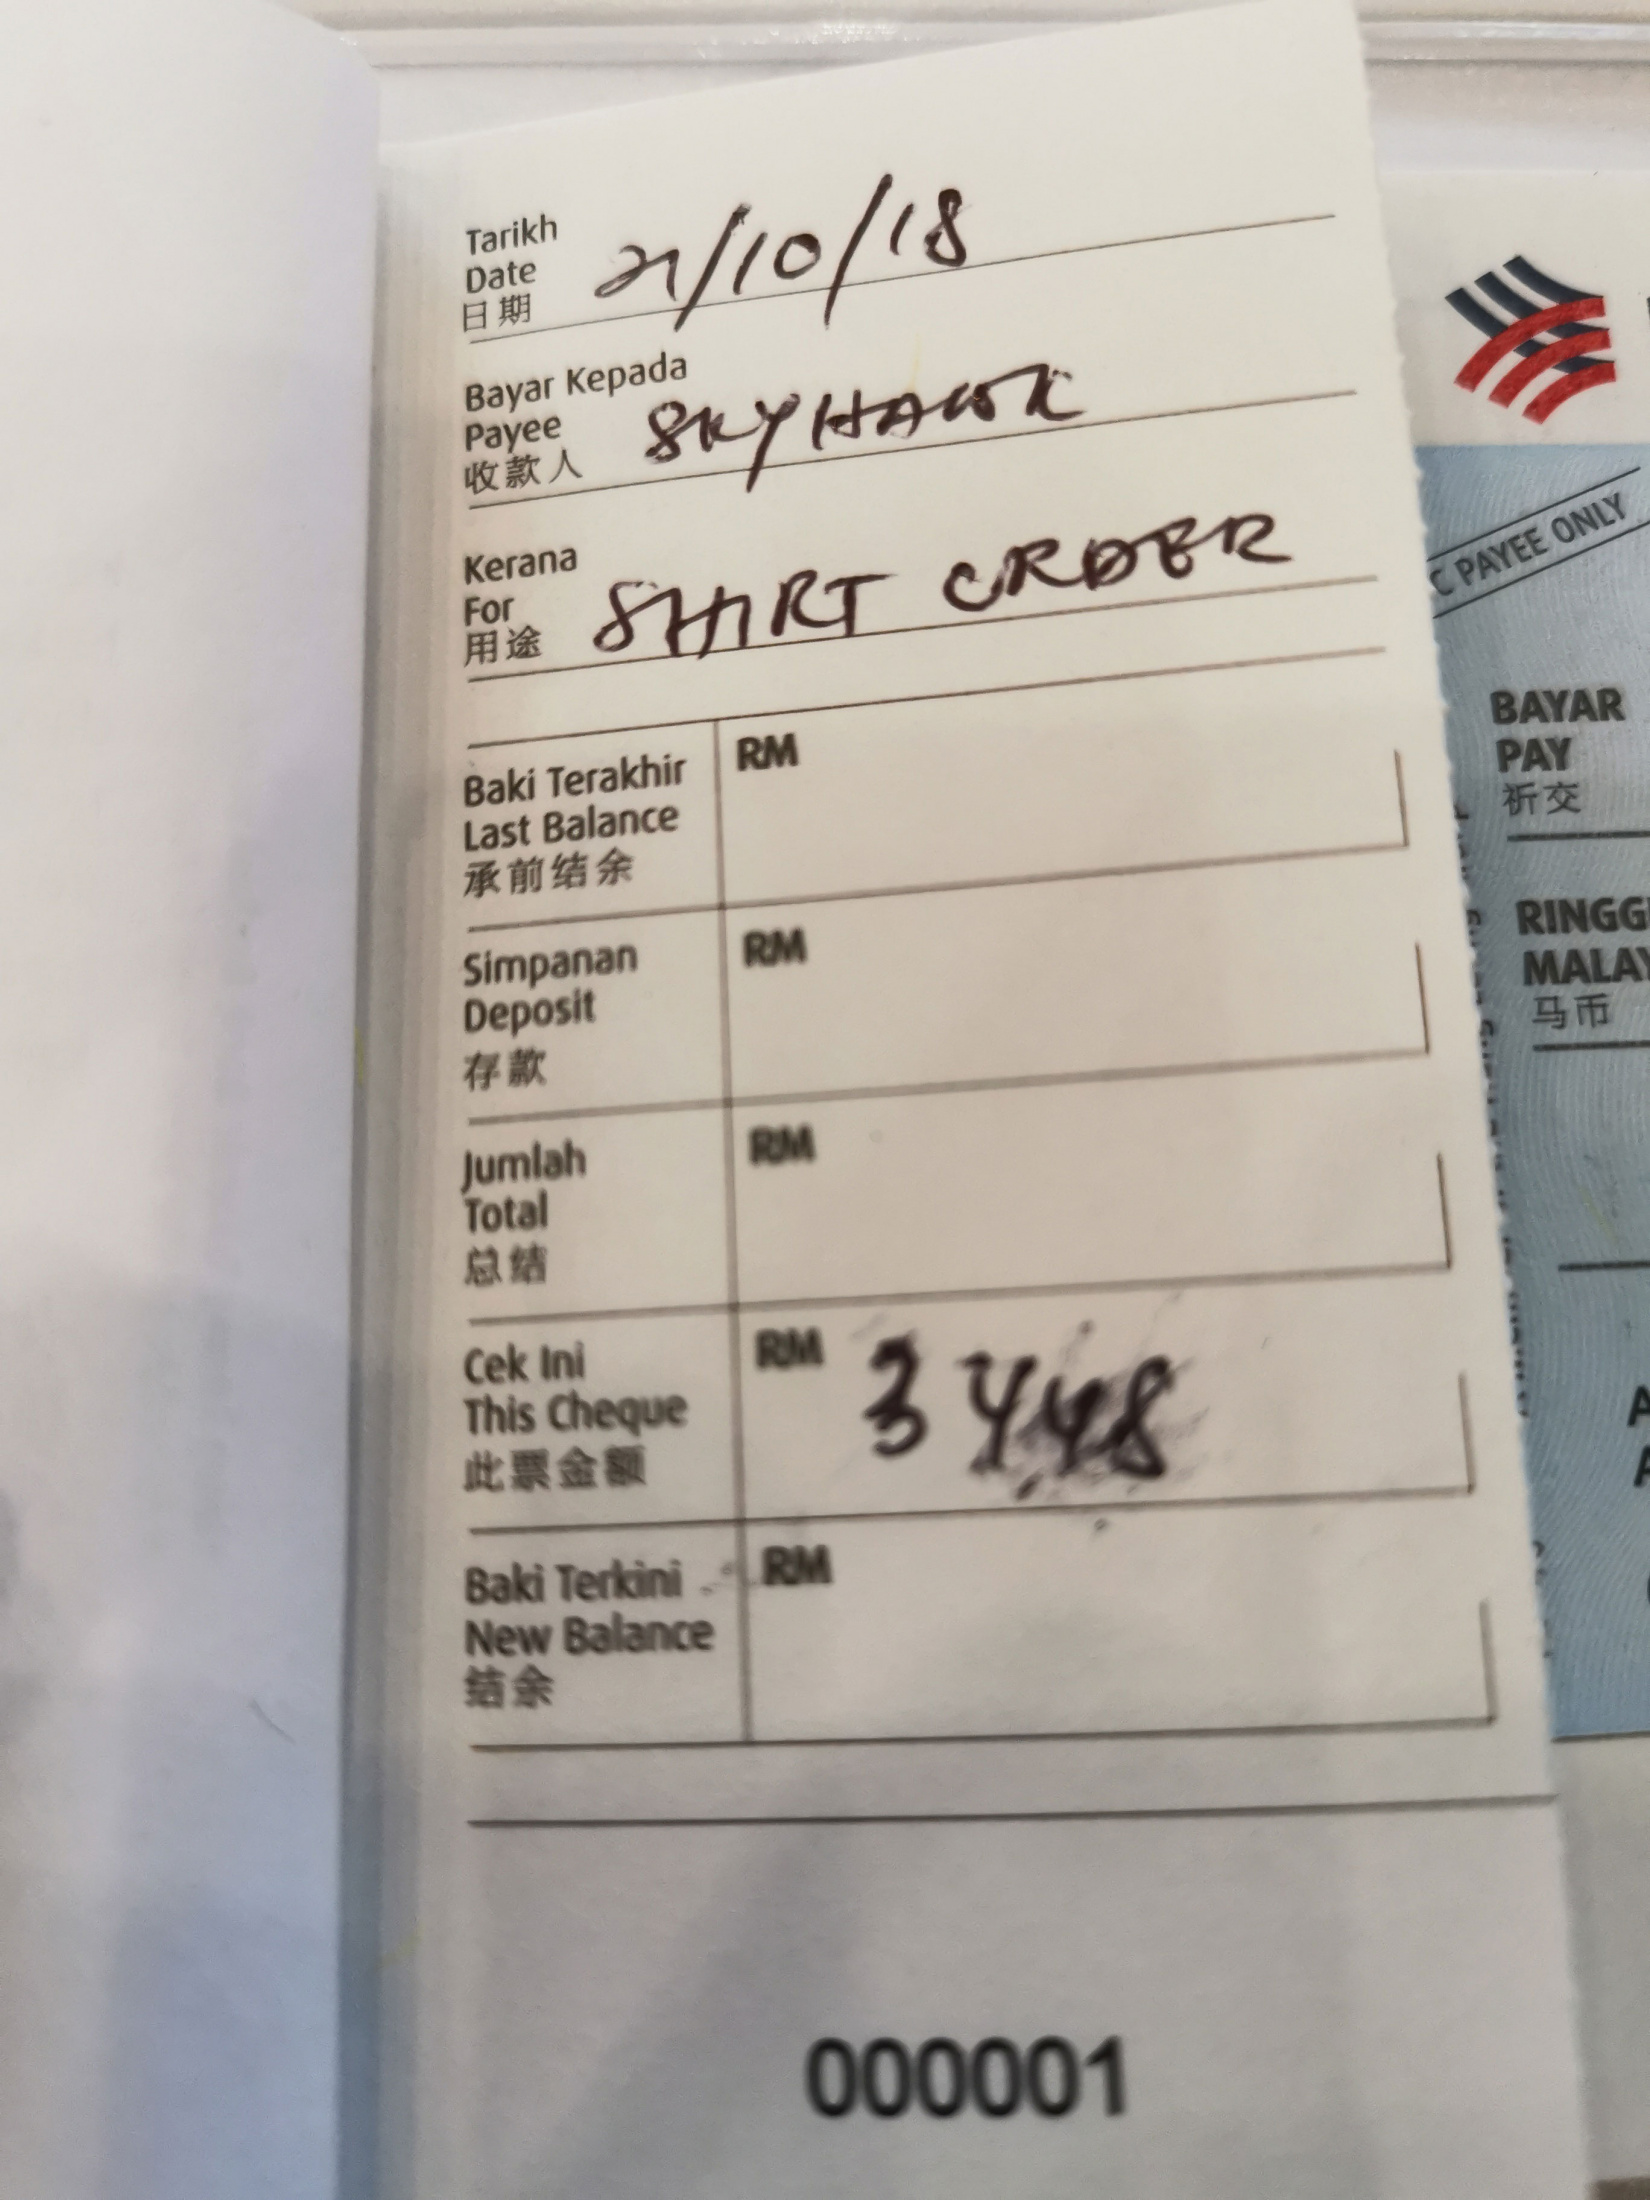 Tarikh
Date
日期
21/10/18
Bayar Kepada
Payee
收款人
SKYHAWK
Kerana
For
用途
SHIRT ORDER
Baki Terakhir
Last Balance
承前结余
RM
Simpanan
Deposit
存款
RM
Jumlah
Total
总结
RM
Cek Ini
This Cheque
此票金额
RM 3448
Baki Terkini
New Balance
结余
RM
000001
PAYEE ONLY
BAYAR
PAY
祈交
RINGG
MALAY
马币